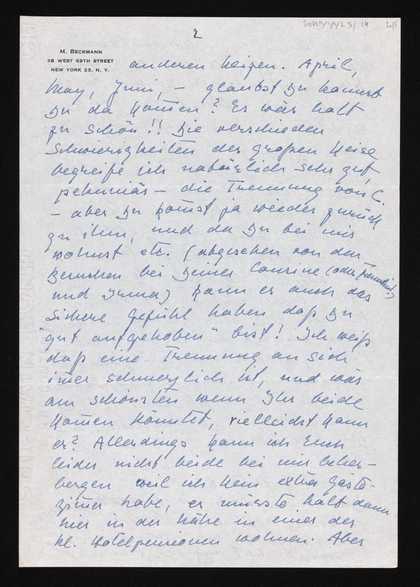 2
M. BECKMANN
38 WEST 69TH STREET
NEW YORK 23, N. Y.
anderen heizen. April,
May, Juni, – glaubst Du kannst
Du da kommen? Es wär halt
zu schön!! Die verschieden
Schwierigkeiten der großen Reise
begreife ich natürlich sehr gut
pekuniär – die Trennung von C.
– aber Du kommst ja wieder zurück
zu ihm, und da Du bei mir
wohnst etc. (abgesehen von den
Besuchen bei Deiner Cousine (oder Freundin?)
und Irma) kann er auch das
sichere Gefühl haben daß Du
"gut aufgehoben" bist! Ich weiß
daß eine Trennung an sich
immer schmerzlich ist, und wär
am schönsten wenn Ihr beide
kommen könntet, vielleicht kann
er? Allerdings kann ich Euch
leider nicht beide bei mir beher-
bergen weil ich kein extra Gäste-
zimmer habe, er müsste halt dann
hier in der Nähe in einer der
kl. Hotelpensionen wohnen. Aber